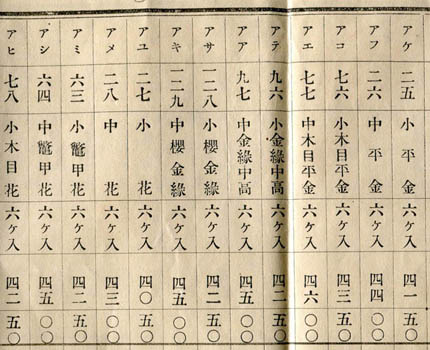 アケ 二五 小平金 六ケ入 四一 五〇
アフ 二六 中平金 六ケ入 四四 〇〇
アコ 七六 小木目平金 六ケ入 四三 五〇
アエ 七七 中木目平金 六ケ入 四六 〇〇
アテ 九六 小金緣中高 六ケ入 四二 五〇
アア 九七 中金緣中高 六ケ入 四五 五〇
アサ 一二八 小櫻金緣 六ケ入 四二 五〇
アキ 一二九 中櫻金緣 六ケ入 四五 〇〇
アユ 二七 小花 六ケ入 四〇 五〇
アメ 二八 中花 六ケ入 四三 〇〇
アミ 六三 小鼈甲花 六ケ入 四二 五〇
アシ 六四 中鼈甲花 六ケ入 四五 〇〇
アヒ 七八 小木目花 六ケ入 四二 五〇